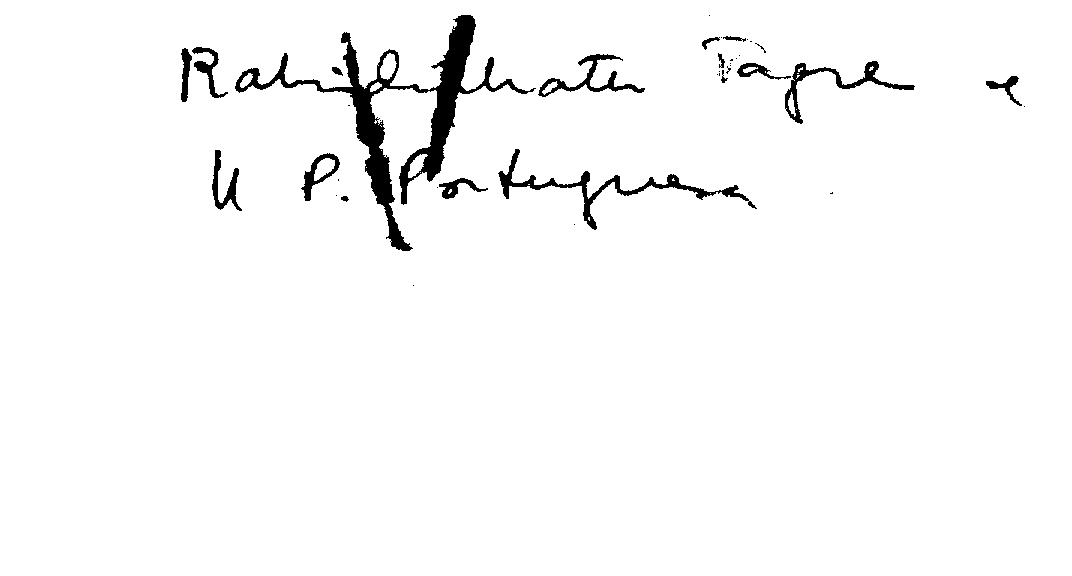 Rabindranath Tagore e
U P. Portuguesa